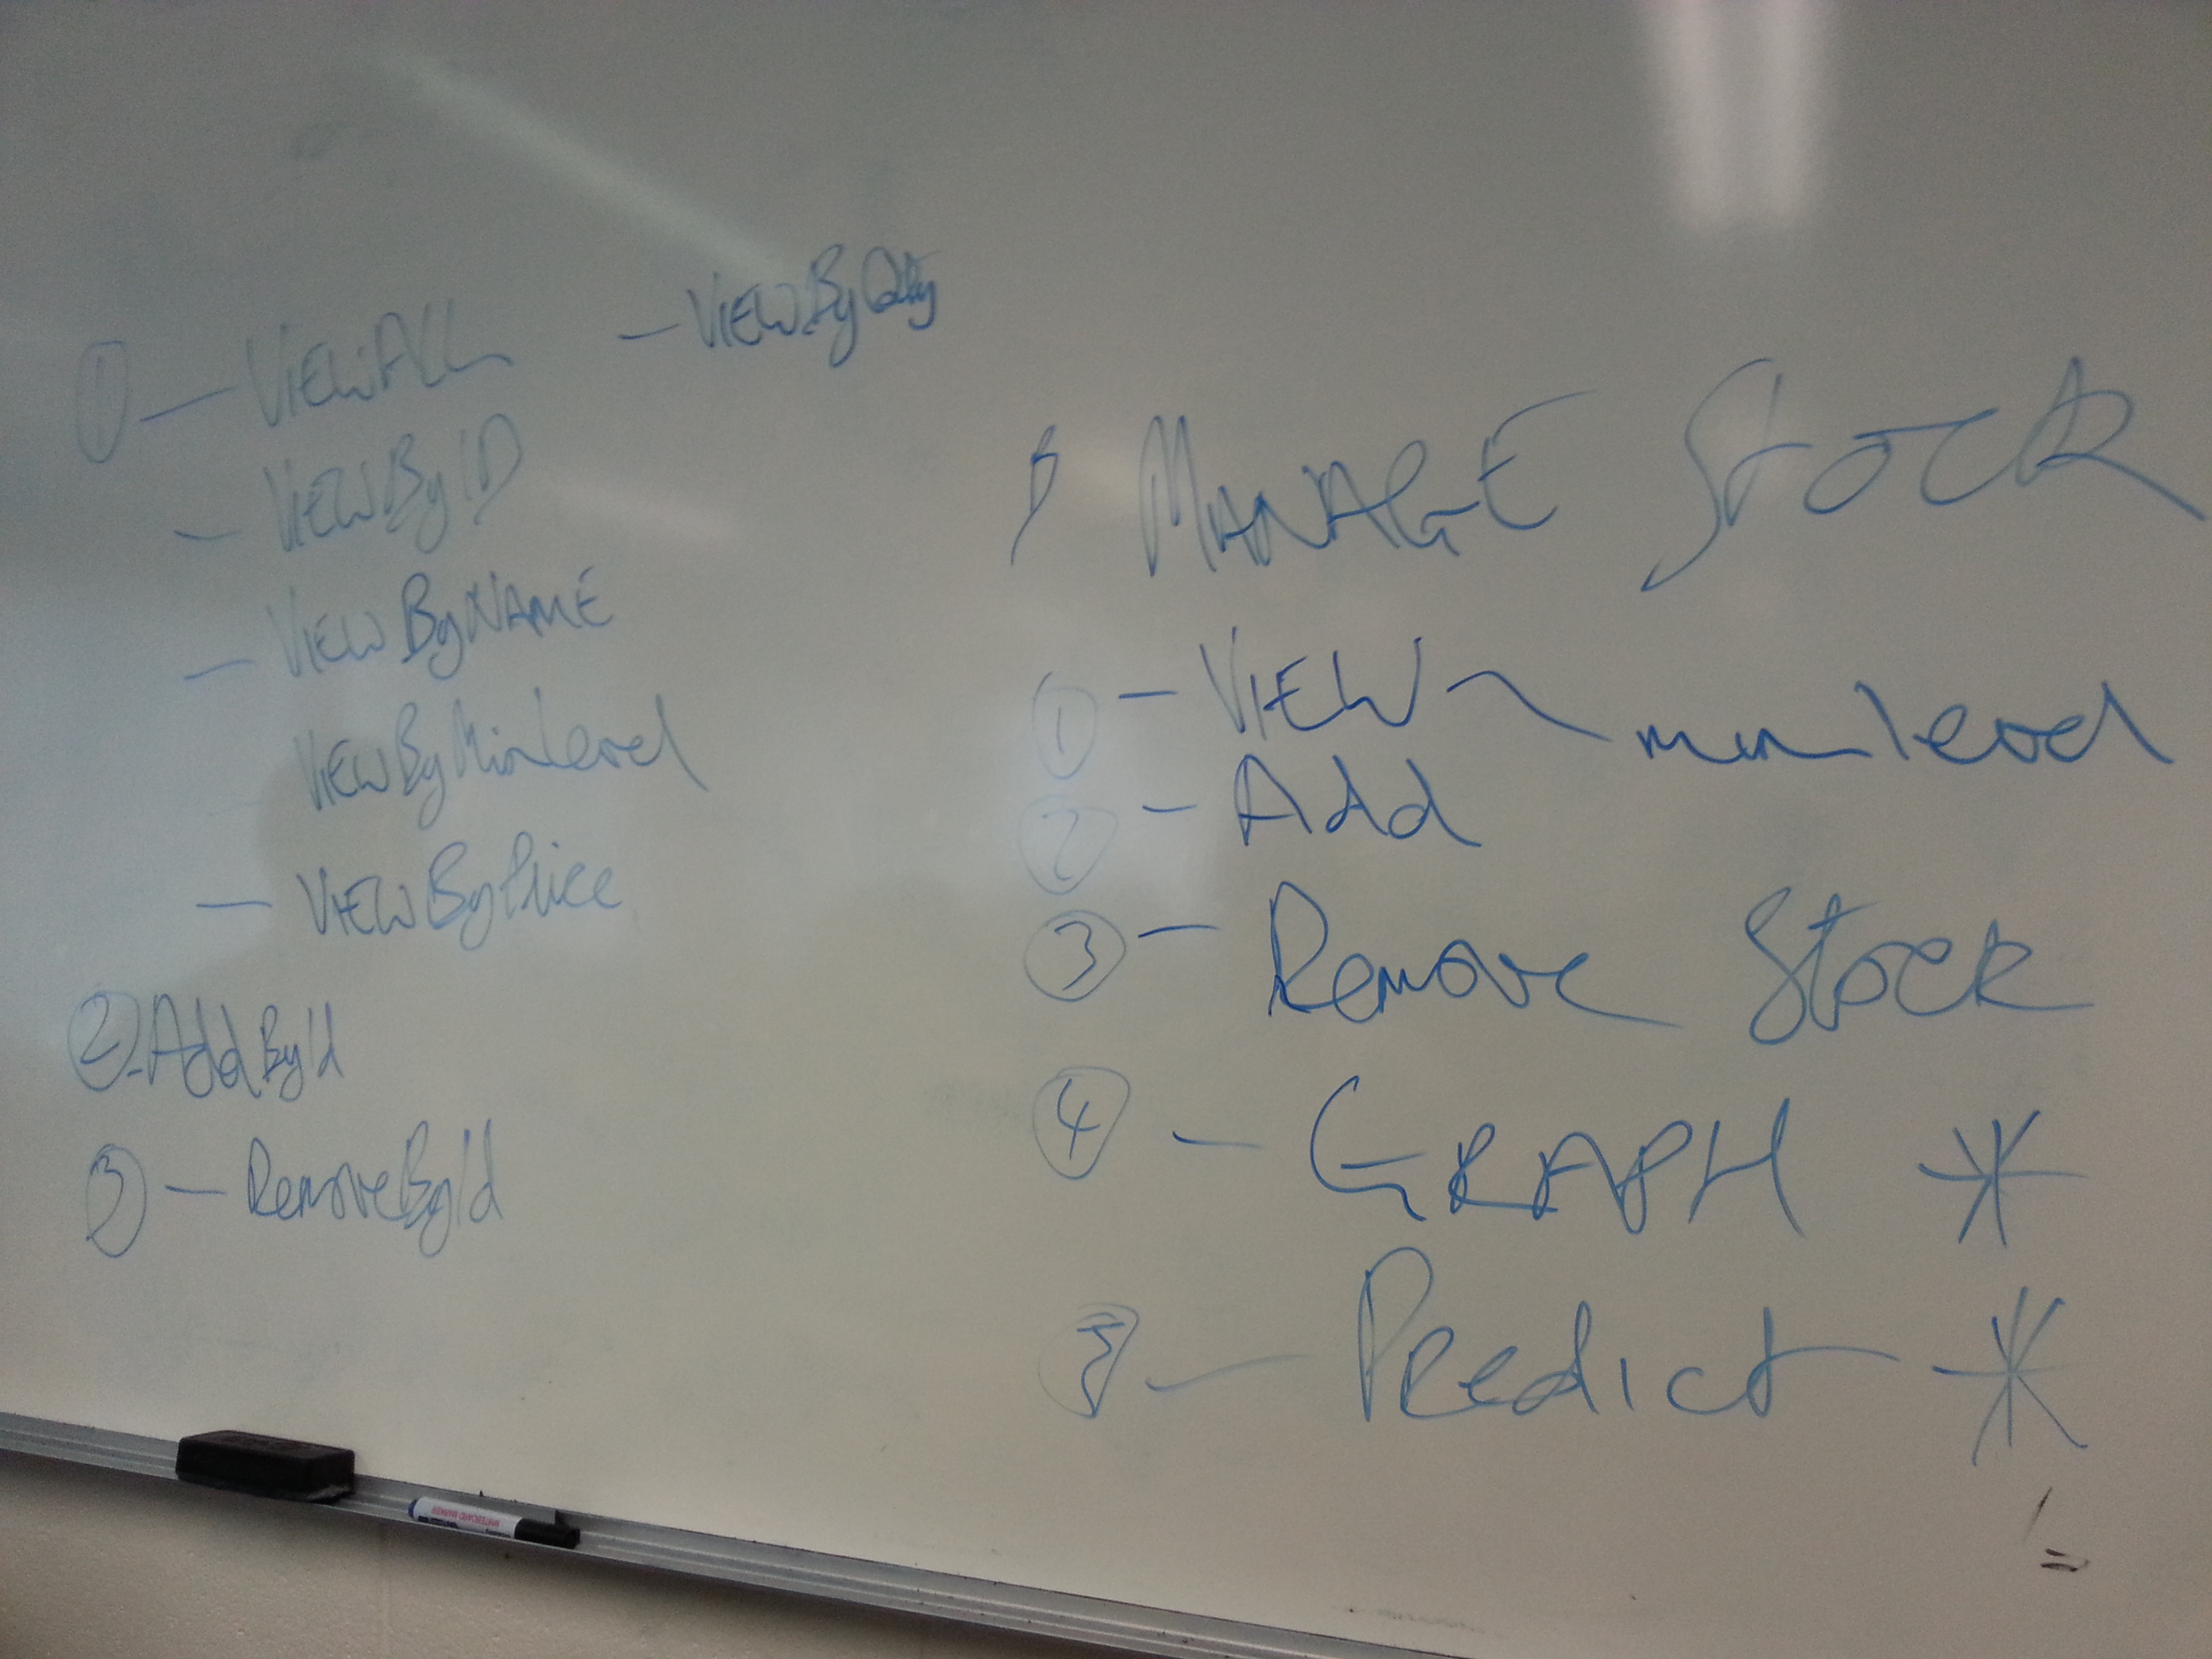 ① — VIEWALL — VIEWByQty
— VIEWByID
— VIEWByNAME
VIEWByMinLevel
— VIEWByPrice
② - AddById
③ — RemoveById
MANAGE STOCK
① — VIEW ~ minlevel
② — Add
③ — Remove Stock
④ — GRAPH *
⑤ — Predict *
WHITEBOARD MARKER